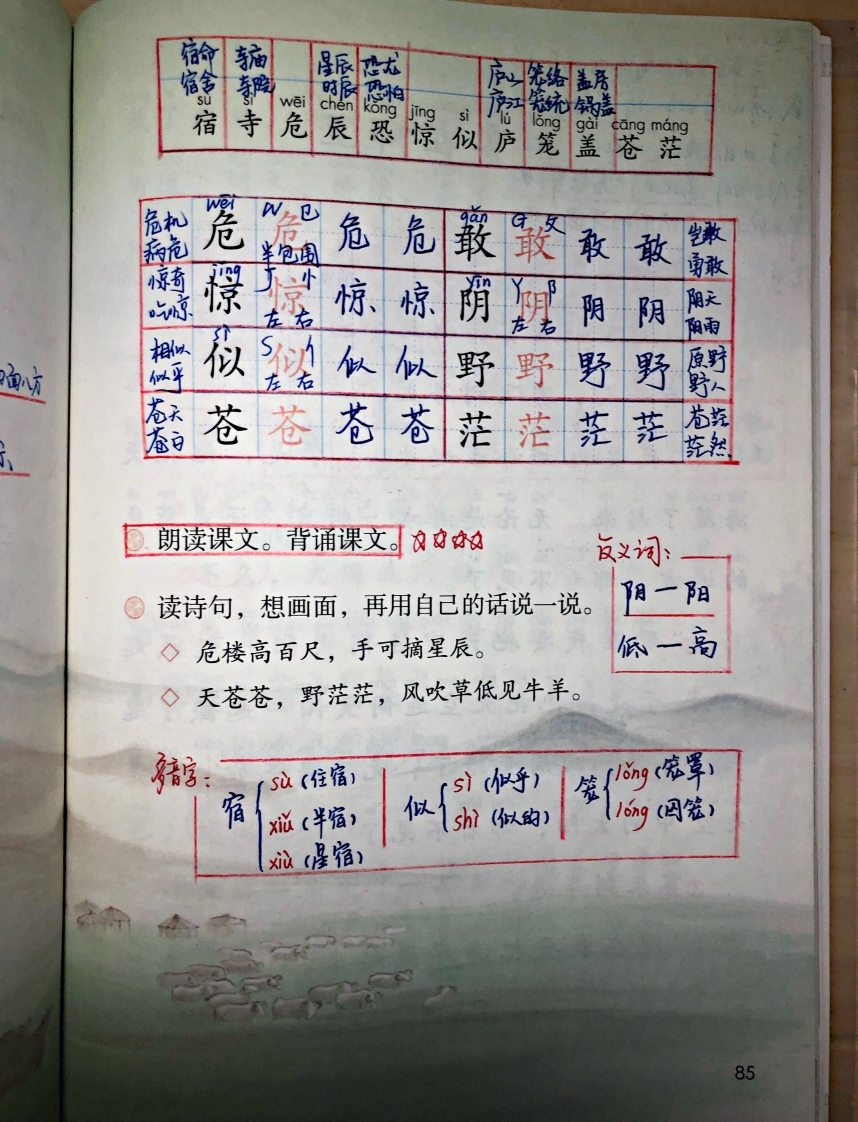 宿命 寺庙 星辰 恐龙 庐山 笼络 盖房
宿舍 寺院 时辰 恐怕 庐江 笼统 锅盖
sù sì wēi chén kǒng jīng sì lú lǒng gài cāng máng
宿 寺 危 辰 恐 惊 似 庐 笼 盖 苍 茫
wēi W 㔾 gǎn G 攵
危机 危 危 危 危 敢 敢 敢 敢 岂敢
病危 半包围 勇敢
jīng J 忄 yīn Y 阝
惊奇 惊 惊 惊 惊 阴 阴 阴 阴 阴天
吃惊 左 右 左 右 阴雨
sì S 亻
相似 似 似 似 似 野 野 野 野 原野
似乎 左 右 野人
苍天 苍 苍 苍 苍 茫 茫 茫 茫 苍茫
苍白 茫然
面八方
朗读课文。背诵课文。
反义词：
阴—阳
低—高
读诗句，想画面，再用自己的话说一说。
◇ 危楼高百尺，手可摘星辰。
◇ 天苍苍，野茫茫，风吹草低见牛羊。
多音字：
宿 sù（住宿） 似 sì（似乎） 笼 lǒng（笼罩）
xiǔ（半宿） shì（似的） lóng（囚笼）
xiù（星宿）
85